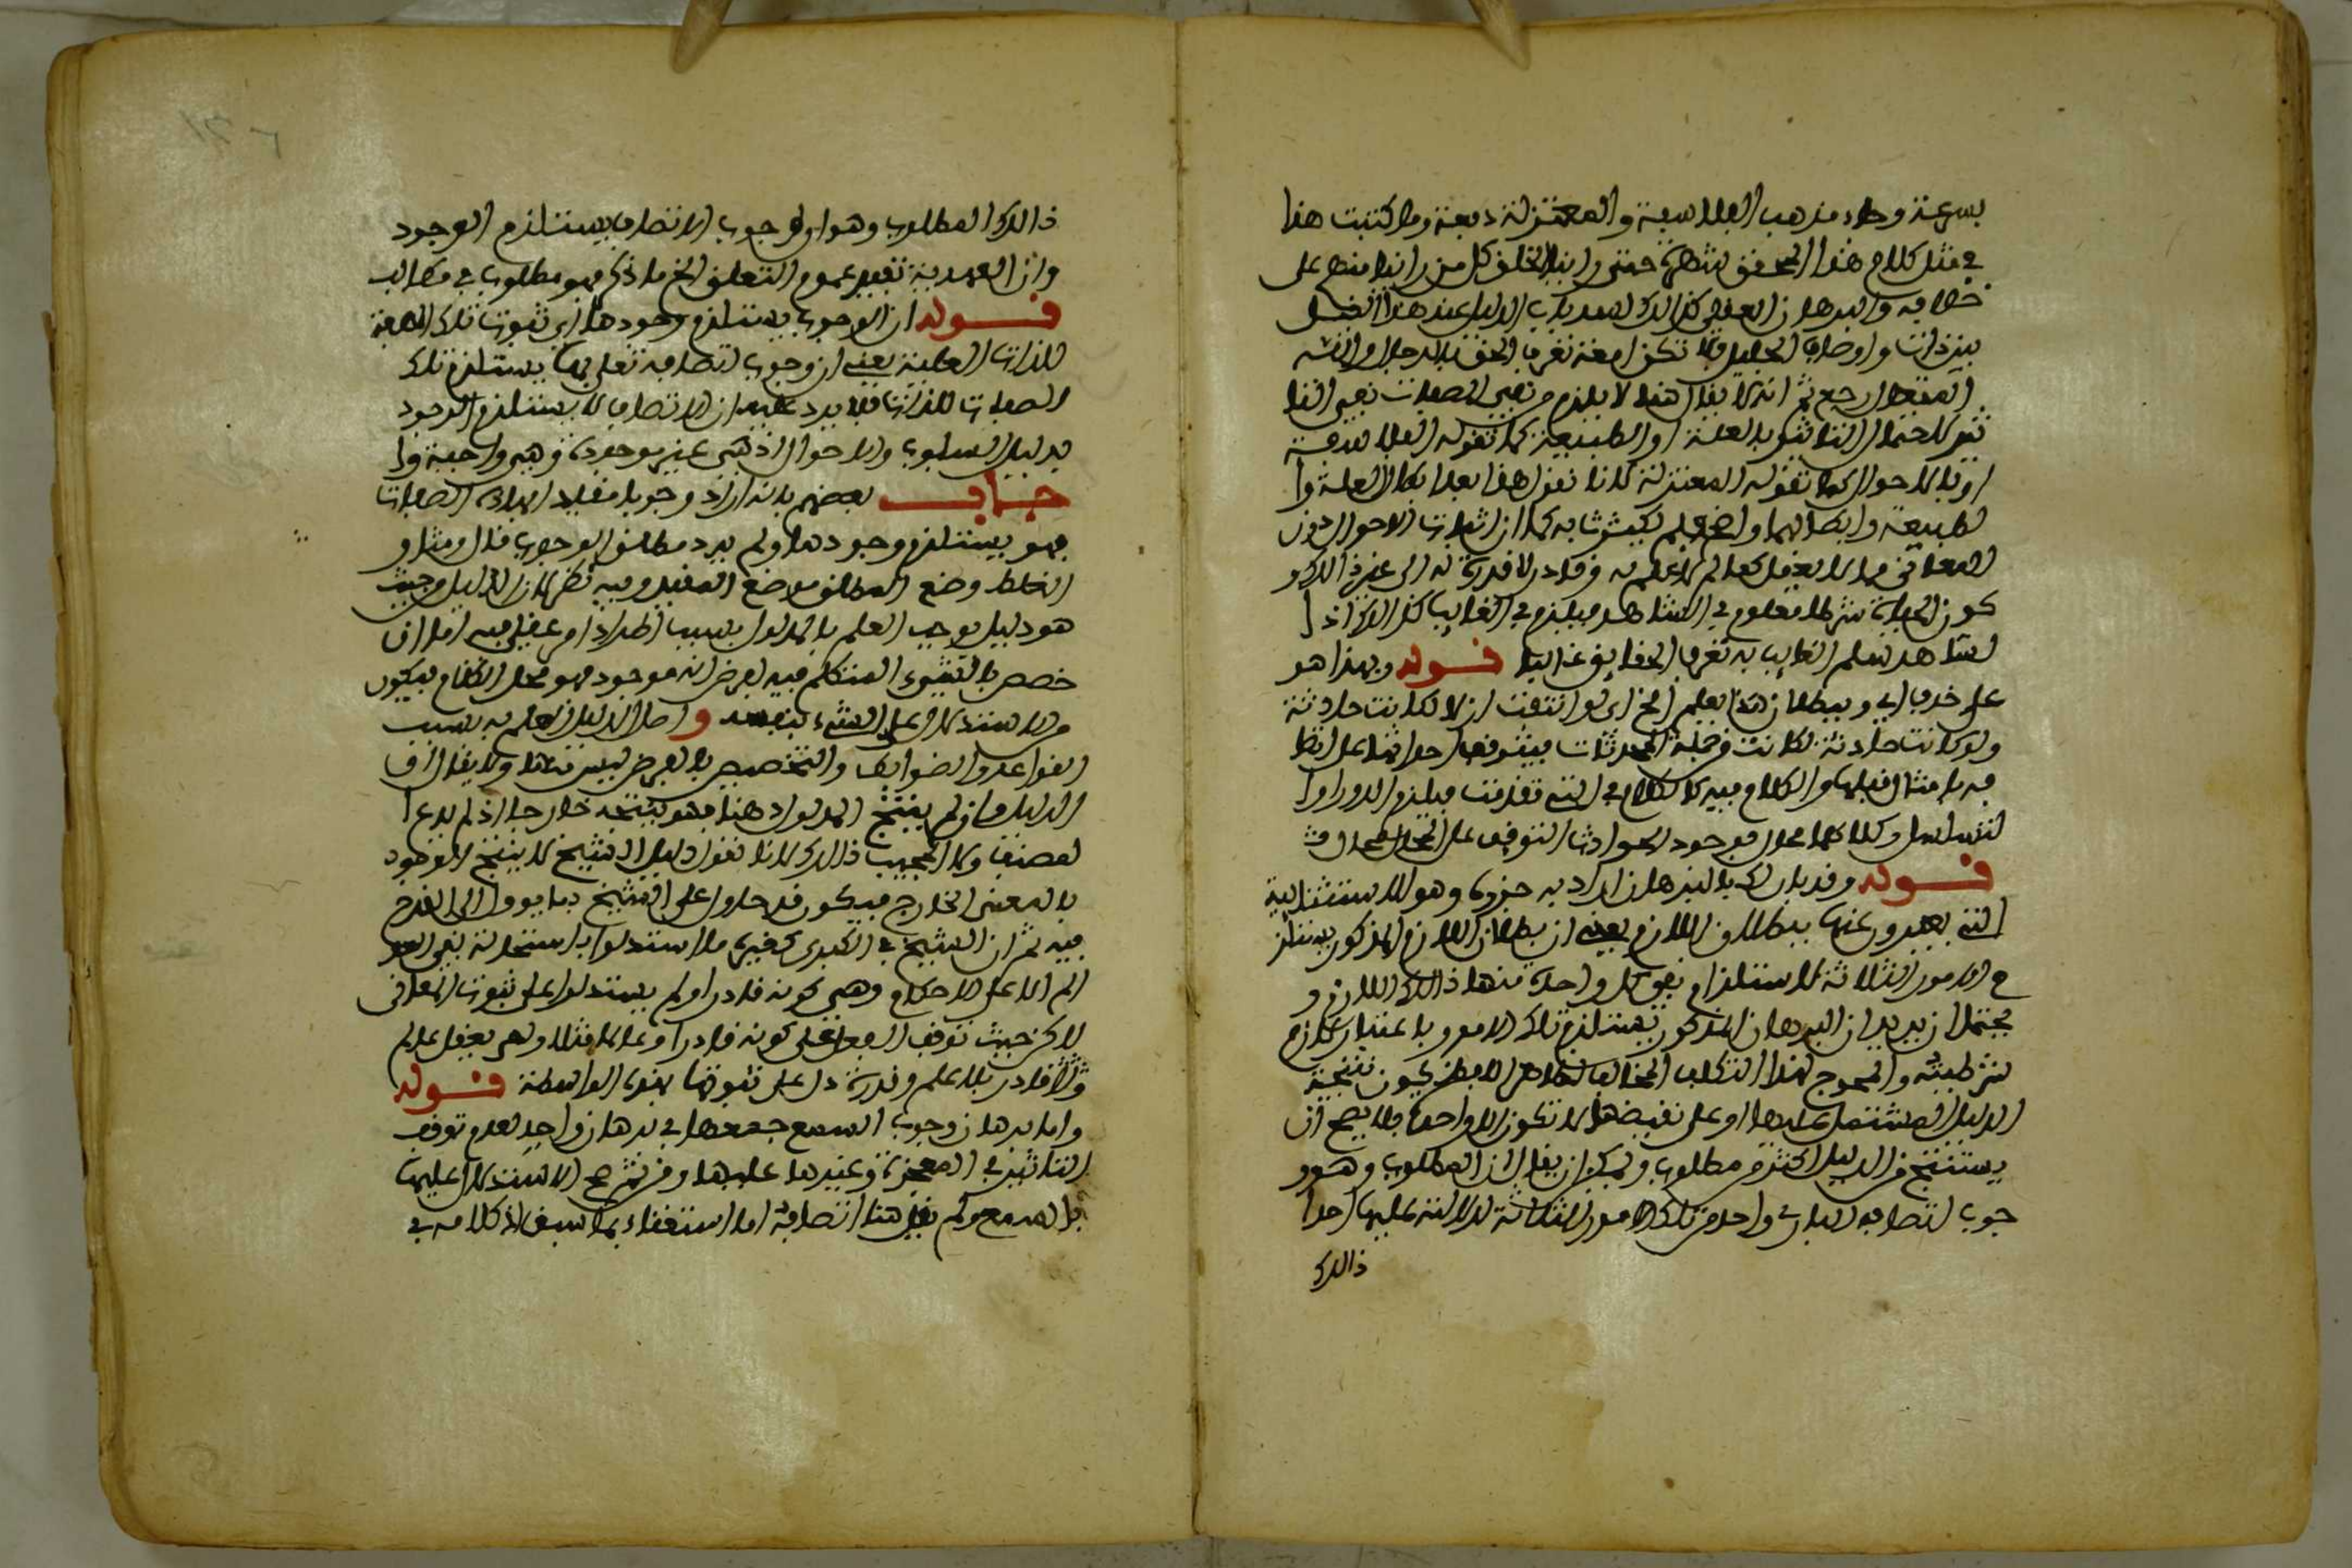 بسرعة وجاء مذهب الفلاسفة والمعتزلة دبعة وما كتبت هذا
في مثل كلام هذا المحقق حتى رأينا الخلق كل من رأينا منهم على
خلافه والبرهان العقلي كذلك الدليل عند هذا
بنذات وأوصاف الجليل فلا تكن امعة تعرف الحق بالرجال
ارجع ثم انه لا يقال هنا لا يلزم من نفي الصفات نفي
لاحتمال التأثير بالعلة او الطبيعة كما تقوله الفلاسفة
او بالاحوال كما تقوله المعتزلة لانا نقول هذا بعد ابطال العلة وا
لطبيعة وابطالهما واضح كما ان اثبات الاحوال دون
المعاني مما لا يعقل كعالم لا علم له وقادر لا قدرة له الى غير ذلك و
كون الحياة شرطا معلوم في الشاهد فيلزم في الغايب كذلك اذ ا
لشاهد سلم الغايب به تعرف الحقايق غالبا قوله وبهذا هو
على حذف اي وببطلان هذا يعلم الخ اي لو انتفت ازلا لكانت حادثة
ولو كانت حادثة لكانت من جملة المحدثات فيتوقف احداثها على اتصا
فه بامثال قبلها والكلام فيه كالكلام في التي تقدمت فيلزم الدور او ا
لتسلسل وكلاهما محال فوجود الحوادث المتوقف على المحال محال
قوله وقد بان لك بالبرهان اراد به جزءه وهو الاستثنائية
التي يعبرون عنها ببطلان اللازم يعني ان بطلان اللازم المذكور يستلز
م الامور الثلاثة لاستلزام نفي كل واحدة منها ذلك اللازم و
يحتمل ان يريد ان البرهان المذكور يستلزم تلك الامور باعتبار تلازم
شرطيته والمحوج لهذا التكلف المخالف لظاهر اللفظ كون نتيجة
الدليل المشتمل عليها او على نقيضها لا تكون الا واحدة فلا يصح ان
يستنتج من الدليل اكثر من مطلوب ويمكن ان يقال ان المطلوب وهو و
جوب اتصافه البارى واحد من تلك الامور الثلاثة لدلالته عليها احدا
ذالك
ذالك المطلوب وهو اي وجوب الاتصاف يستلزم الوجود
وان الصمدية تفيد عموم التعلق الخ ما ذكر فهو مطلوب في مطالب
قوله ان الوجوب يستلزم وجودها اي ثبوت تلك الصفة
للذات العلية يعني ان وجوب اتصافه تعلى بها يستلزم تلك
الصفات للذات فلا يرد عليه ان الاتصاف لا يستلزم الوجود
بدليل السلوب والاحوال اذ هي غير موجودة وهي واجبة وا
جاب بعضهم بانه اراد وجوبا مقيدا بهذه الصفات
فهو يستلزم وجودها ولم يرد مطلق الوجوب قال ومثار
الغلط وضع المطلق موضع المقيد وفيه نظر لان الدليل من حيث
هو دليل يوجب العلم بالمدلول بسبب اطراد امر عقلي فيه اما ان
خصص بالشيء المتكلم فيه لفرض انه موجود فهو محل الكلام فيكون
من الاستدلال على الشيء بنفسه واصل الدليل العلم به بسبب
القواعد والضوابط والتخصيص بالفرض ليس منها ولا يقال ان
الدليل وان لم ينتج المدلول ذهنا فهو ينتجه خارجا اذ لم يدع ا
لمصنف ولا المجيب ذلك لانا نقول دليل الشيخ لا ينتج الوجود
بالمعنى الخارج فيكون قد حاول على الشيخ بما يوول الى القدح
فيه ثم ان الشيخ في الكبرى كغيره ما استدلوا باستحالة نفي العو
الم الا على الاحكام وهي كونه قادرا ولم يستدلوا على ثبوت المعاني
لاكن حيث توقف الفعل على كونه قادرا وعالما مثلا ولم يعقل عالم
ولا قادر بلا علم وقدرة دل على ثبوتها بهذه الواسطة قوله
واما برهان وجوب السمع جمعها في برهان واحد لعدم توقف
التاثير في المعجزة وغيرها عليها ومن ثم صح الاستدلال عليها
بالسمع ولم يقل هنا اتصافه اما استغناء بما سبق اذ كلامه في